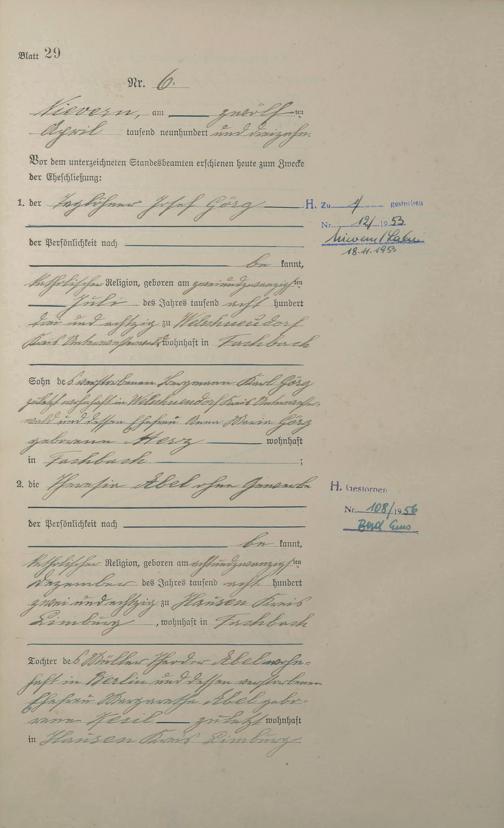 Blatt 29
Nr. 6.
Nievern, am zwölf ten
April tausend neunhundert und dreizehn.
Vor dem unterzeichneten Standesbeamten erschienen heute zum Zwecke
der Eheschließung:
1. der Taglöhner Josef Görg
der Persönlichkeit nach
be kannt,
katholischer Religion, geboren am zweiundzwanzigsten
Juli des Jahres tausend acht hundert
drei und achtzig zu Welschneudorf
Kreis Unterwesterwald, wohnhaft in Fachbach
Sohn des verstorbenen Bergmann Karl Görg
zuletzt wohnhaft in Welschneudorf Kreis Unterwester-
wald und dessen Ehefrau Anna Maria Görg
geborenen Herz wohnhaft
in Fachbach ;
2. die Theresia Abel ohne Gewerbe
der Persönlichkeit nach
be kannt,
katholischer Religion, geboren am achtundzwanzigsten
Dezember des Jahres tausend acht hundert
zwei und achtzig zu Hausen Kreis
Limburg, wohnhaft in Fachbach
Tochter des Müller Theodor Abel wohn-
haft in Berlin und dessen verstorbenen
Ehefrau Margaretha Abel gebo-
renen zuletzt wohnhaft
in Hausen Kreis Limburg.
H. Zu gestorben
Nr. 12/1953
Nievern/Lahn
18.11.1953
H. Gestorben
Nr. 108/1956
Bad Ems